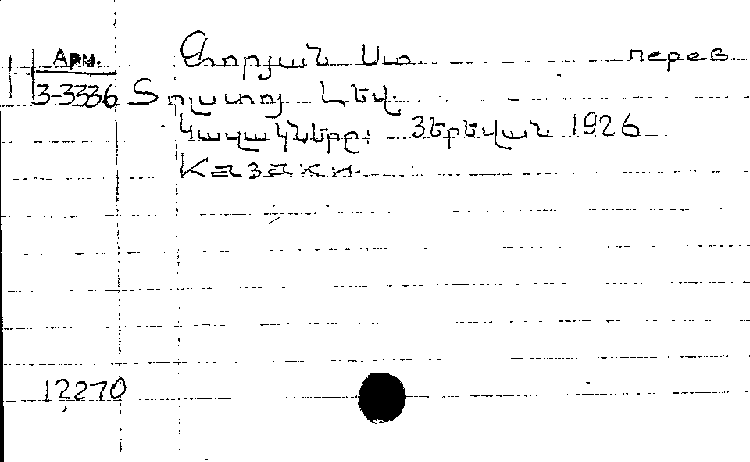 Арм. Զորյան Ստ. перев
3-3336 Տոլստոյ Լեվ.
Կազակները։ Յերեվան 1926
Казаки.
12270